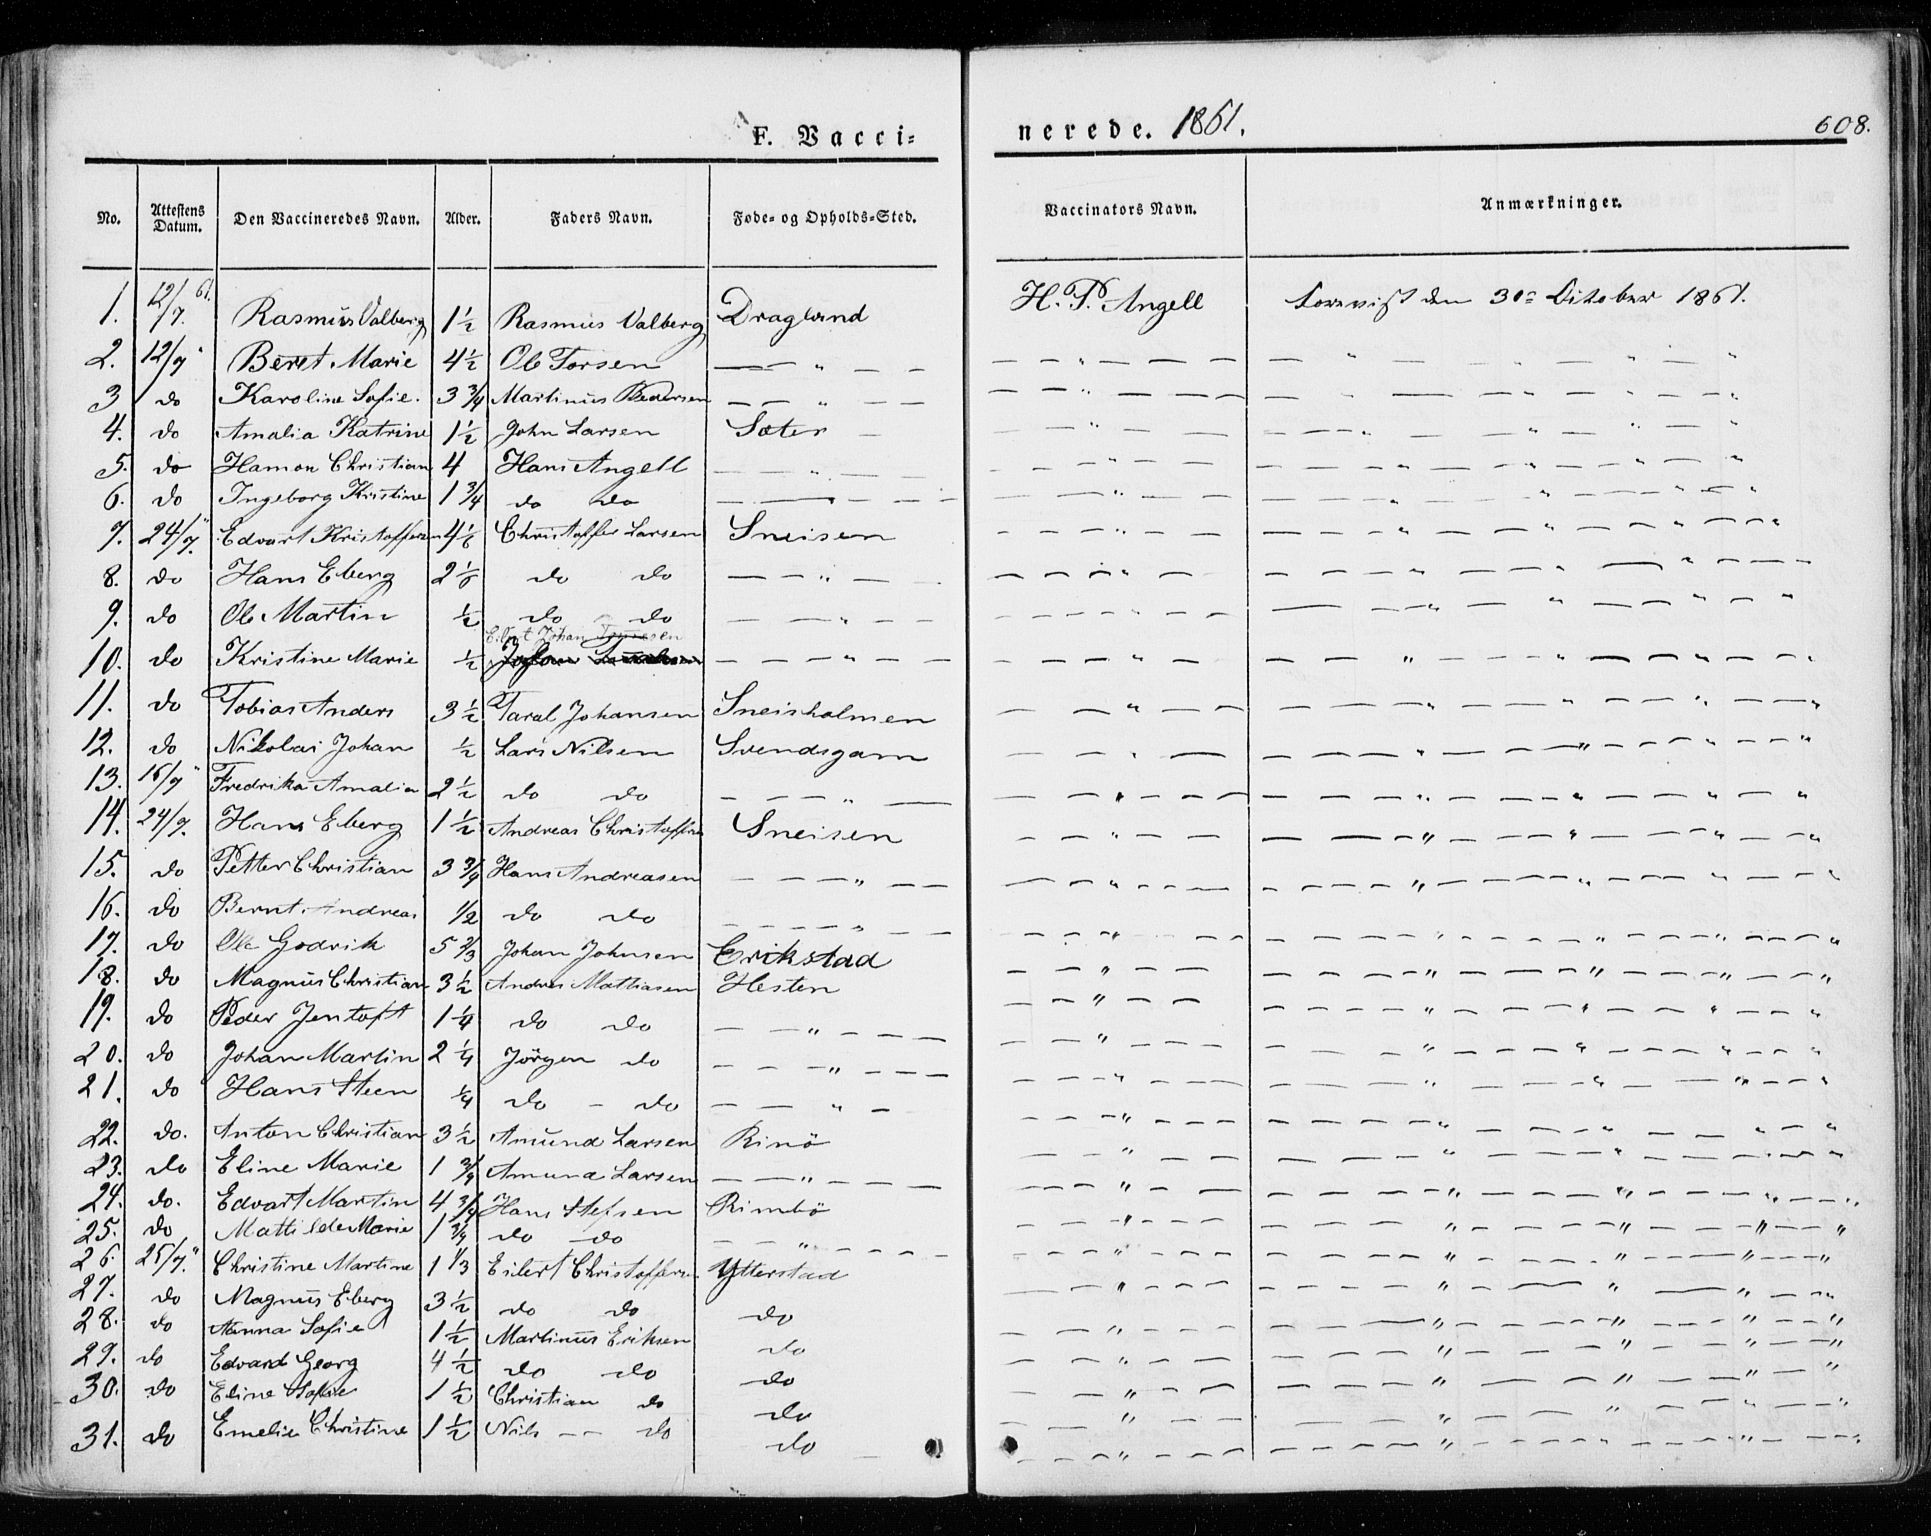 F. Vacci-
nerede. 1861.
608.
No. Attestens Datum. Den Vaccineredes Navn. Alder. Faders Navn. Føde- og Opholds-Sted. Vaccinators Navn. Anmærkninger.
1. 12/7 61. Rasmus Valberg 1 1/2 Rasmus Valberg Dragland H. P. Angell Forevist den 30 October 1861.
2. 12/7 " Beret Marie 4 1/2 Ole Torsen — " — —
3 do Karoline Sofie. 3 3/4 Martinus Pedersen — — " — —
4. do Amalia Katrine 1 1/2 John Larsen Sæter —
5. do Hamon Christian 4 Hans Angell — — " — —
6. do Ingeborg Kristine 1 3/4 do do — — — — —
7. 24/7 " Edvart Kristoffersen 4 1/6 Christoffer Larsen Sneisen
8. do Hans Eberg 2 1/6 do do — — " — —
9. do Ole Martin 1/2 do do — — — " —
10. do Kristine Marie 1/2 Johan Tønnesen — — — " — —
11. do Tobias Anders 3 1/2 Taral Johansen Sneisholmen
12. do Nikolai Johan 1/2 Lars Nilsen Svendsgam
13. 16/7 " Fredrika Amalia 2 1/2 do do — — — " —
14. 24/7. Hans Eberg 1 1/2 Andreas Christoffer Sneisen
15. do Petter Christian 3 3/4 Hans Andreasen — — — " — —
16. do Bernt Andreas 1/2 do do — — — — " — —
17. do Ole Godrik 5 2/3 Johan Johnsen Erikstad
18. do Magnus Christian 3 1/2 Andres Mathiasen Hesten
19. do Peder Jentoft 1 1/4 do do — — " — — —
20. do Johan Martin 2 1/4 Jörgen do — — — " — — —
21. do Hans Steen 1/4 do - do — — — " —
22. do. Anton Christian 3 1/2 Amund Larsen Rinö
23. do Eline Marie 1 3/4 Amund Larsen — — — " — — —
24. do. Edvart Martin 4 3/4 Hans Stefsen Rimbö
25. do Matilde Marie 1 3/4 do — do — — — " — — —
26. 25/7 " Christine Martine 1 1/3 Eilert Christoffersen Ytterstad
27. do Magnus Eberg 3 1/2 do do do
28. do Anna Sofie 1 1/2 Martinus Eriksen do
29. do Edvard Georg 4 1/2 do do do
30. do Eline Sofie 1 1/2 Christian do do
31. do Emelie Christine 1 1/2 Nils — — do do